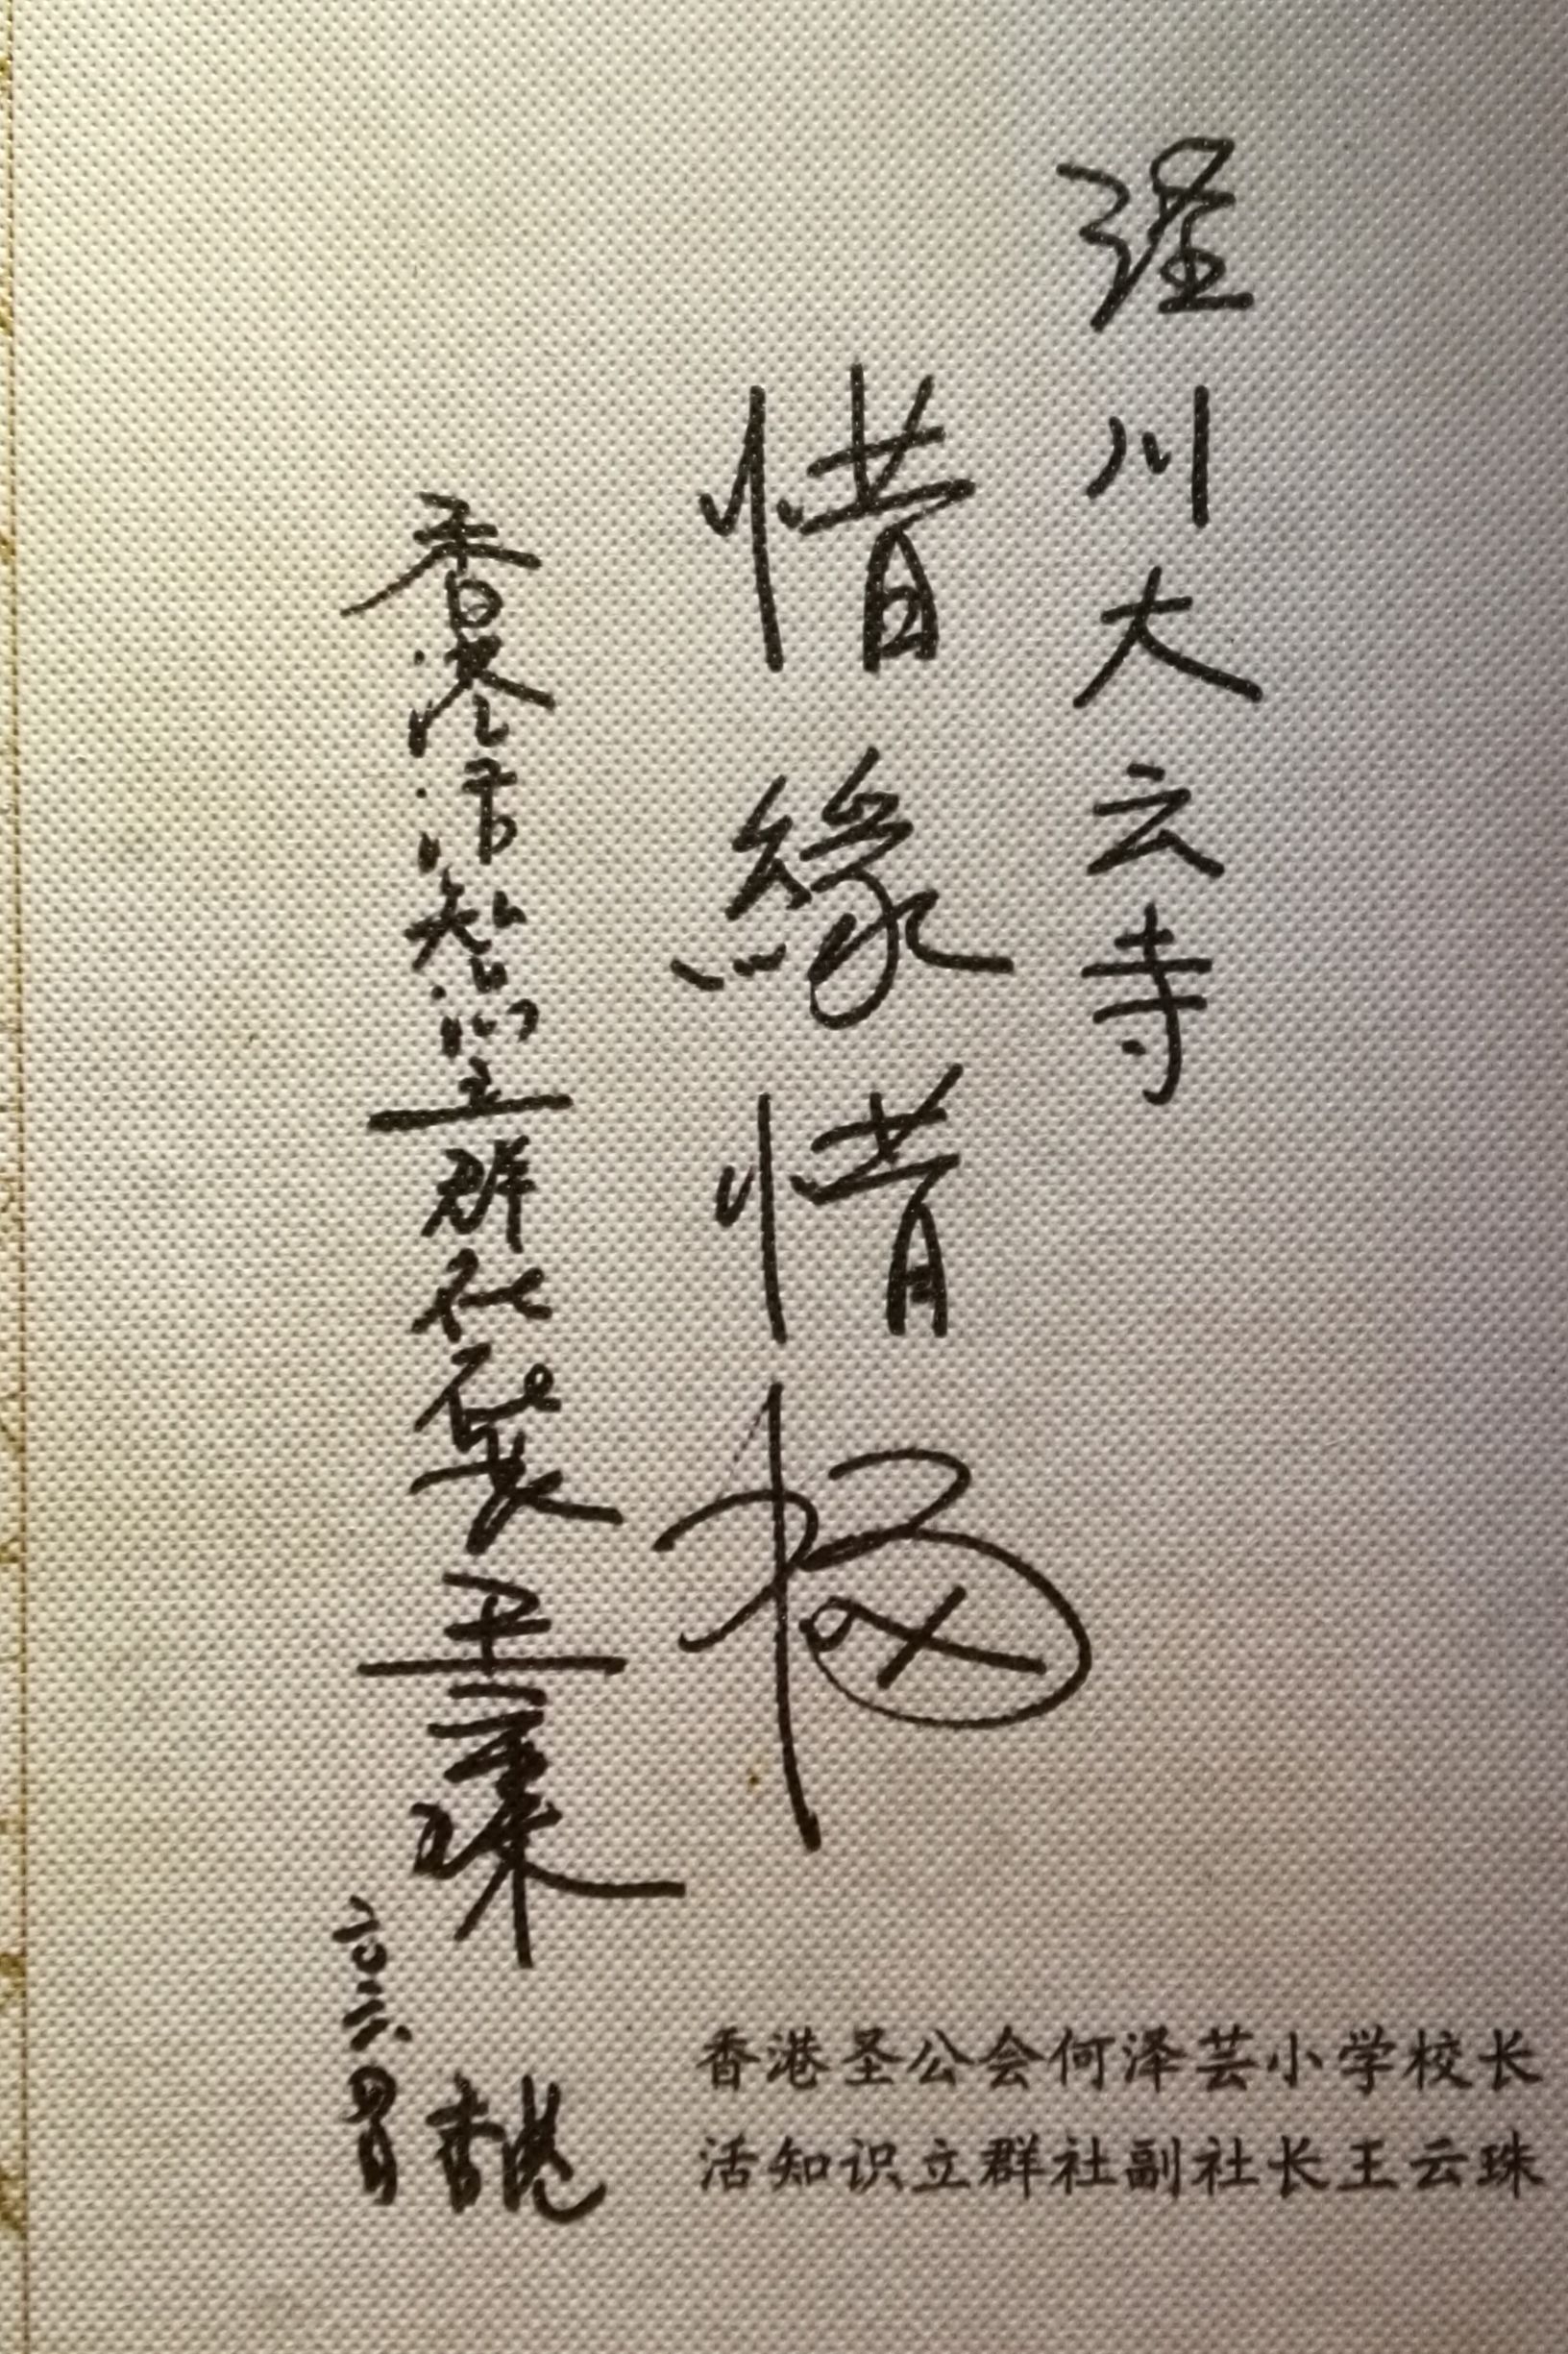 泾川大云寺
惜緣惜福
香港活知识立群社社長王云珠
香港
香港圣公会何泽芸小学校长
活知识立群社副社长王云珠